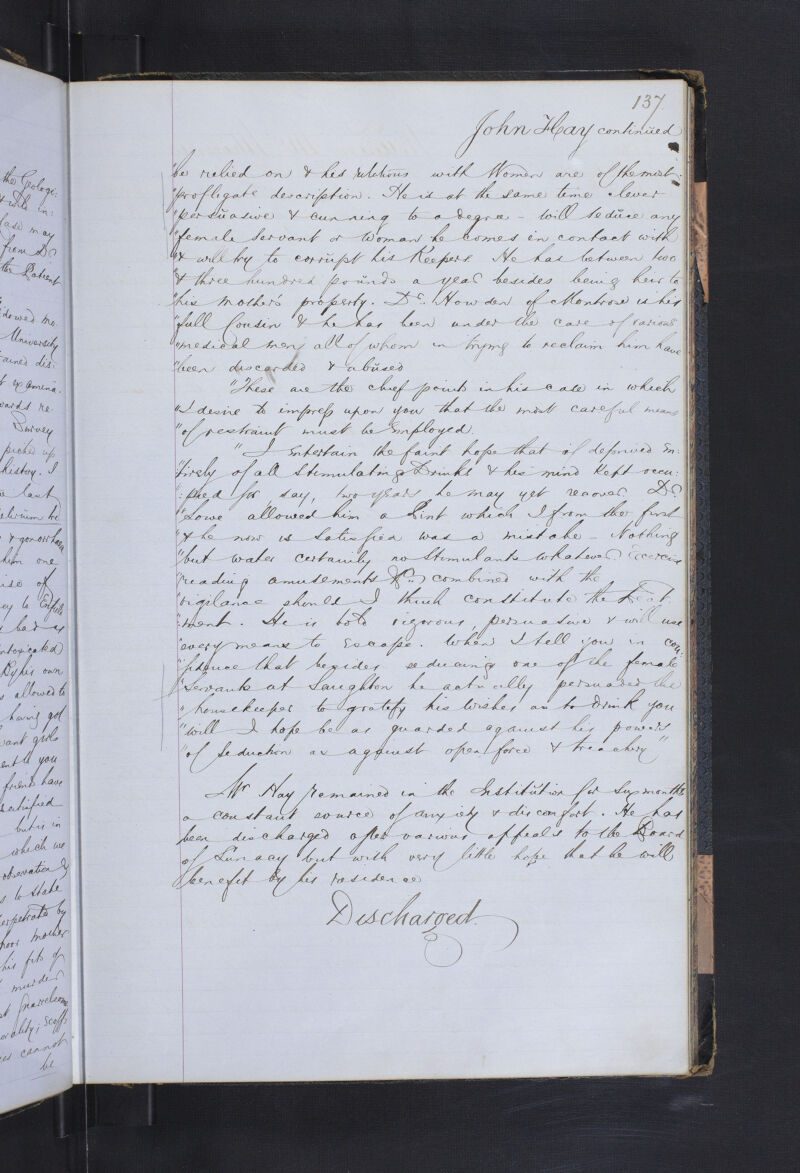 the Geologi:
from Dr
the Patient
University
examina:
Survey
picked up
history. I
last
delirium he
& gonorrhoea
him one
use of
bad as
intoxicated
By his own
allowed to
having got
ant girls
sent to you
friends have
ratified
but is in
which we
observation &
to state
perpetrated by
poor mother
his fits of
murder
quarrelsome
morality; scoffs
cannot
be
137
John Hay continued
"be relied on & his relations with Women are of the most
"profligate description. He is at the same time clever
"persuasive & cunning to a degree – will seduce any
"female servant or woman he comes in contact with
"& will try to corrupt his Keepers. He has between two
"& three hundred pounds a year besides being heir to
"his mother's property. Dr. Howden of Montrose is his
"full Cousin & he has been under the care of various
"medical men, all of whom in trying to reclaim him have
"been discarded & abused
"These are the chief points in his case in which
"I desire to impress upon you that the most careful means
"of restraint must be employed.
"I entertain the faint hope that if deprived en-
"tirely of all Stimulating Drinks & his mind kept occu:
":pied for, say, two years he may yet recover. Dr.
"Lowe allowed him a Pint which I from the first
"& he now is satisfied was a mistake – Nothing
"but water certainly no Stimulants whatever. Exercise
"reading amusements &c. combined with the
"vigilance should I think constitute the treat-
"ment. He is both vigorous, persuasive & will use
"every means to escape. When I tell you in con:
"fidence that besides seducing one of the female
"Servants at Saughton he actually persuaded the
"housekeeper to gratify his wishes as to Drink you
"will I hope be as guarded against his powers
"of seduction as against open force & treachery"
Mr Hay remained in the Institution for six months
a constant source of anxiety & discomfort. He has
been discharged after various appeals to the Board
of Lunacy but with very little hope that he will
benefit by his residence
Discharged.